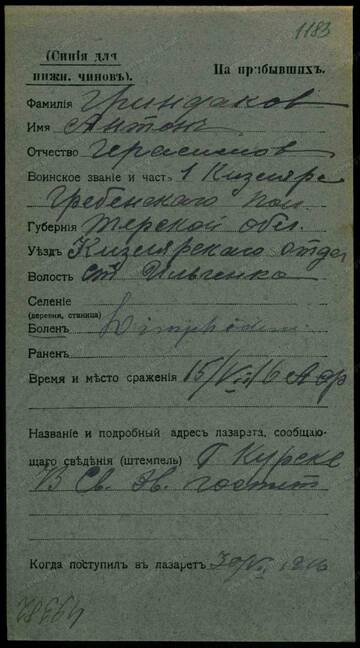 1183
(Синія для
нижн. чиновъ).
На прибывшихъ.
Фамилія Гриндаков
Имя Антон
Отчество Герасимов
Воинское званіе и часть 1 Кизляро
Гребенскаго пол
Губернія Терской обл.
Уѣздъ Кизлярскаго отдел
Волость ст.
Селеніе
(деревня, станица)
Боленъ
Раненъ
Время и мѣсто сраженія 15/VII 16
Названіе и подробный адресъ лазарета, сообщаю-
щаго свѣдѣнія (штемпель) Г Курске
В Св. госпит
Когда поступилъ въ лазаретъ 30/VII 1916